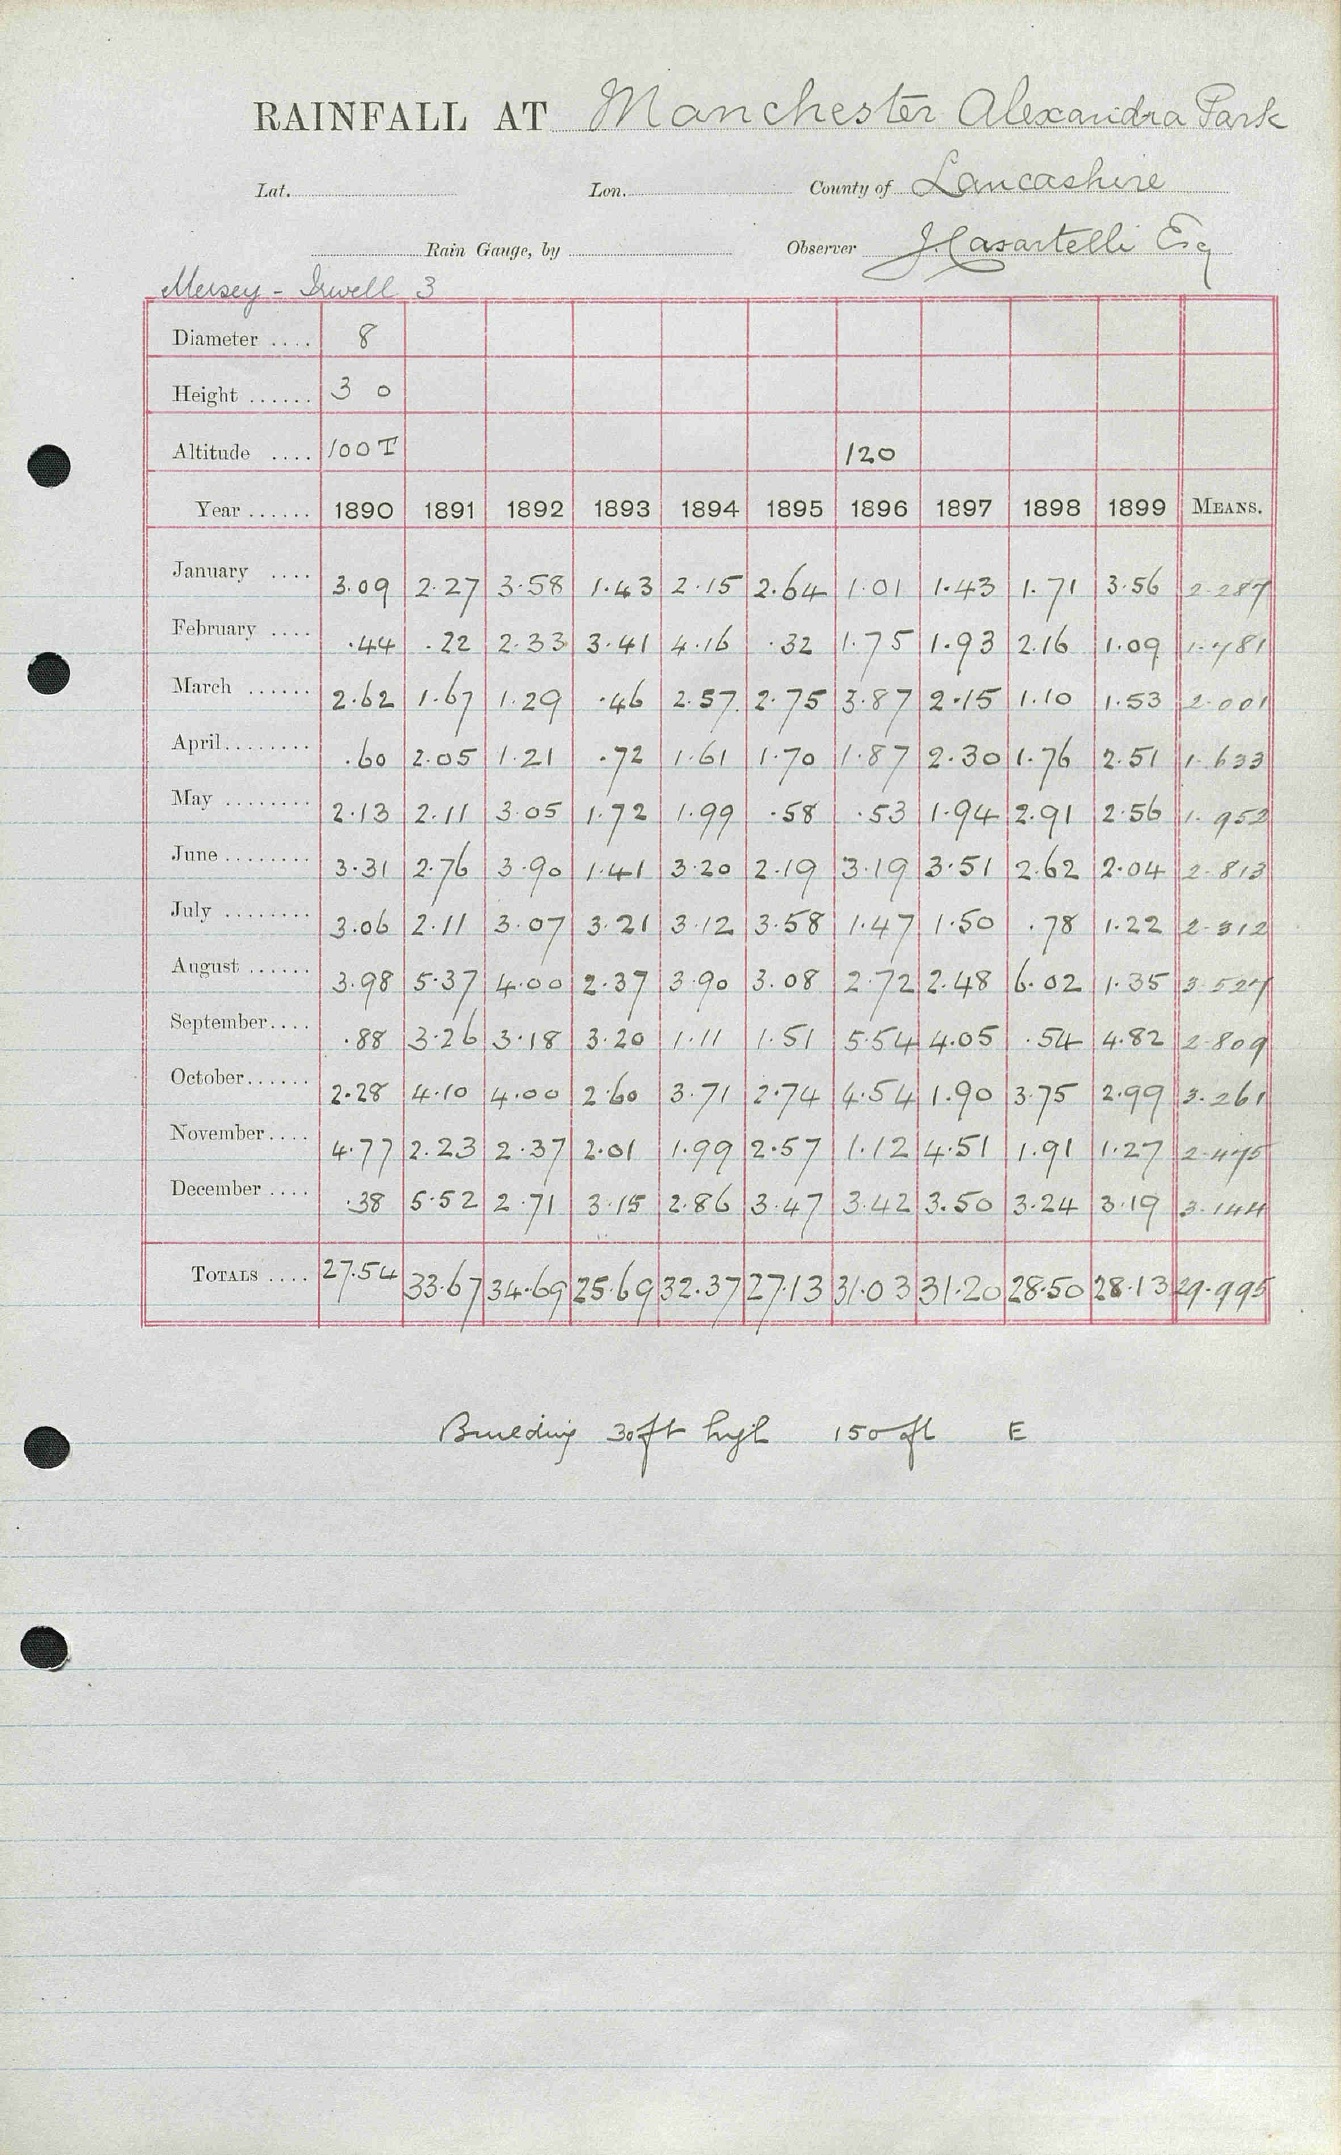 RAINFALL AT Manchester Alexandra Park
Lat. Lon. County of Lancashire
Rain Gauge, by Observer J. Casartelli Esq
Mersey - Irwell 3
Diameter .... 8
Height ...... 3 0
Altitude .... 100T 120
Year ...... 1890 1891 1892 1893 1894 1895 1896 1897 1898 1899 MEANS.
January .... 3.09 2.27 3.58 1.43 2.15 2.64 1.01 1.43 1.71 3.56 2.287
February .... .44 .22 2.33 3.41 4.16 .32 1.75 1.93 2.16 1.09 1.781
March ...... 2.62 1.67 1.29 .46 2.57 2.75 3.87 2.15 1.10 1.53 2.001
April........ .60 2.05 1.21 .72 1.61 1.70 1.87 2.30 1.76 2.51 1.633
May ........ 2.13 2.11 3.05 1.72 1.99 .58 .53 1.94 2.91 2.56 1.952
June ........ 3.31 2.76 3.90 1.41 3.20 2.19 3.19 3.51 2.62 2.04 2.813
July ........ 3.06 2.11 3.07 3.21 3.12 3.58 1.47 1.50 .78 1.22 2.312
August ...... 3.98 5.37 4.00 2.37 3.90 3.08 2.72 2.48 6.02 1.35 3.527
September.... .88 3.26 3.18 3.20 1.11 1.51 5.54 4.05 .54 4.82 2.809
October...... 2.28 4.10 4.00 2.60 3.71 2.74 4.54 1.90 3.75 2.99 3.261
November.... 4.77 2.23 2.37 2.01 1.99 2.57 1.12 4.51 1.91 1.27 2.475
December .... .38 5.52 2.71 3.15 2.86 3.47 3.42 3.50 3.24 3.19 3.144
TOTALS .... 27.54 33.67 34.69 25.69 32.37 27.13 31.03 31.20 28.50 28.13 29.995
Building 30ft high 150ft E